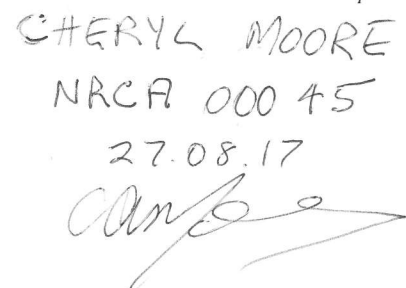 CHERYL MOORE
NRCA 000 45
27.08.17